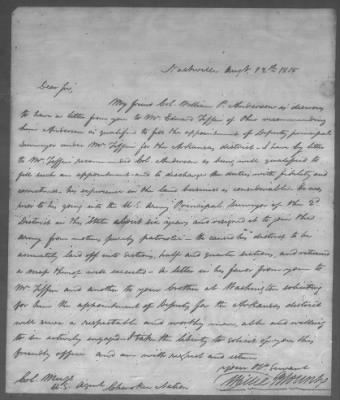 Nashville Augt 12th 1815
Dear Sir,
My friend Col. William P. Anderson is desirous
to have a letter from you to Mr. Edward Tiffin of Ohio recommending
him Anderson is qualified to fill the appointment of Deputy principal
Surveyor under Mr. Tiffin for the Arkansas district. I have by letter
to Mr. Tiffin recommended Col. Anderson as being well qualified to
fill such an appointment and to discharge the duties with fidelity and
his experience in the land business is considerable he was
prior to his going into the U.S. Army Principal Surveyor of the 2d
District in this State about six years and resigned to join the
Army from motives purely patriotic he caused his district to be
accurately laid off into sections, half and quarter sections, and returned
a map thereof well executed. A letter in his favor from you to
Mr. Tiffin and another to your brother at Washington soliciting
for him the appointment of Deputy for the Arkansas district
will serve a respectable and worthy man able and willing
to be actively engaged I take the liberty to solicit of you this
friendly office and am with respect and esteem
your Obt Servant
Willie Blount
Col. Meigs
U.S. Agent Cherokee Nation